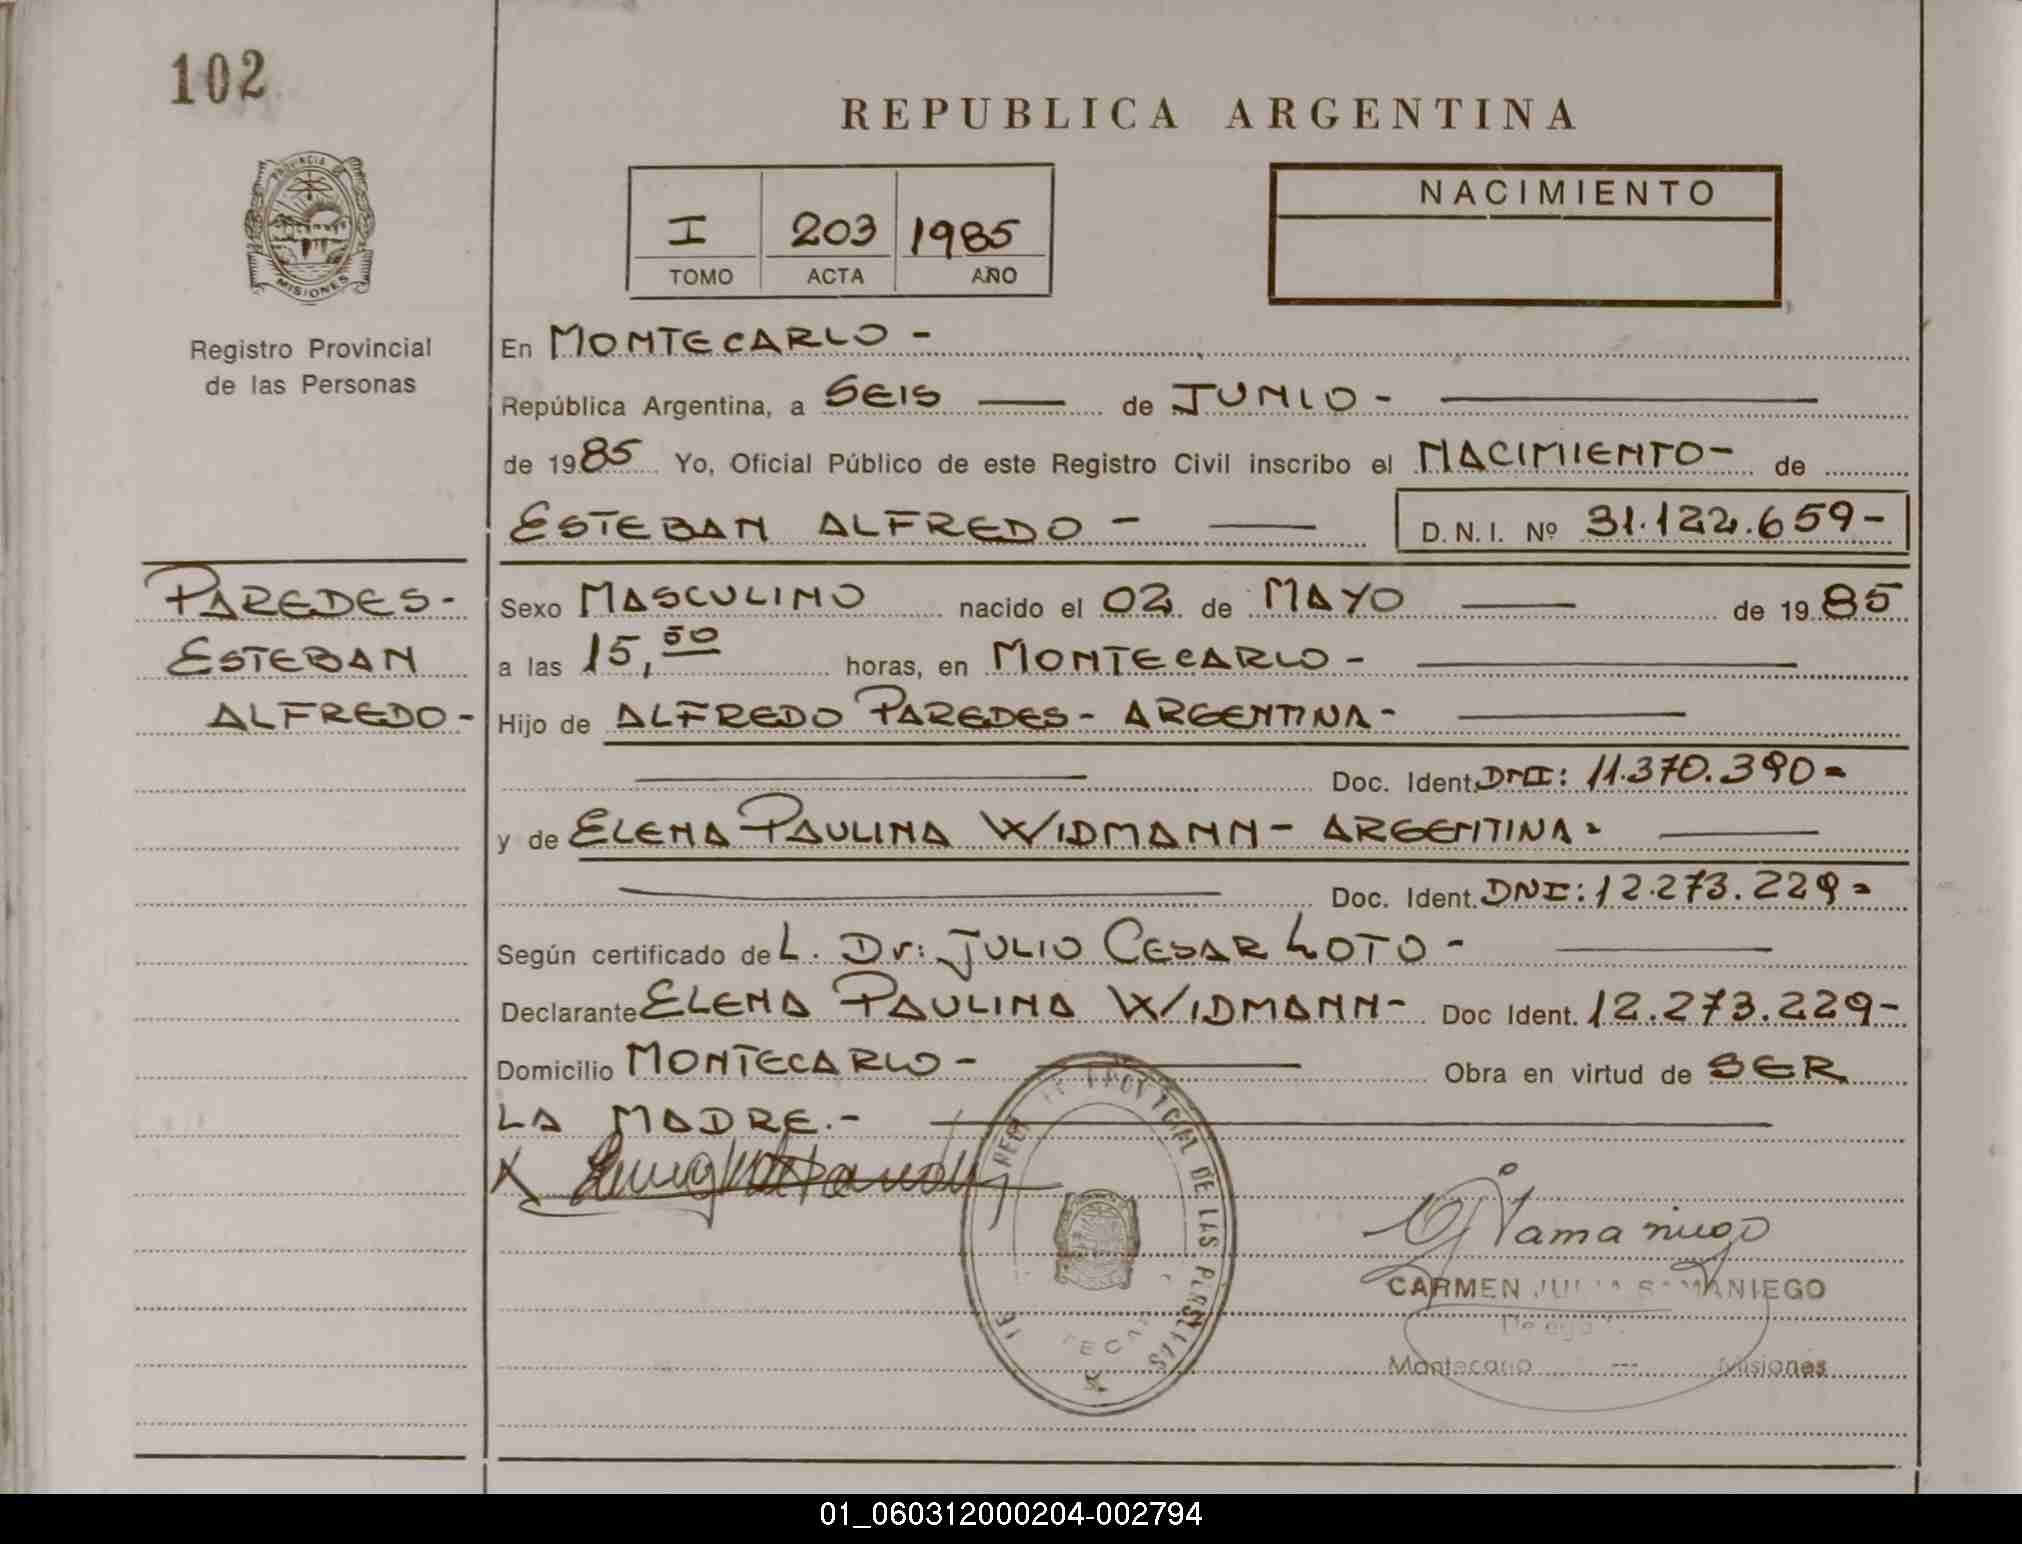 102
REPUBLICA ARGENTINA
PROVINCIA DE
MISIONES
Registro Provincial
de las Personas
I 203 1985
TOMO ACTA AÑO
NACIMIENTO
En MONTECARLO -
República Argentina, a SEIS de JUNIO -
de 1985 Yo, Oficial Público de este Registro Civil inscribo el NACIMIENTO - de
ESTEBAN ALFREDO - D. N. I. Nº 31.122.659 -
PAREDES -
ESTEBAN
ALFREDO -
Sexo MASCULINO nacido el 02 de MAYO de 1985
a las 15,50 horas, en MONTECARLO -
Hijo de ALFREDO PAREDES - ARGENTINA -
Doc. Ident. DNI: 11.370.390 =
y de ELENA PAULINA WIDMANN - ARGENTINA -
Doc. Ident. DNI: 12.273.229 =
Según certificado de L. Dr: JULIO CESAR LOTO -
Declarante ELENA PAULINA WIDMANN - Doc Ident. 12.273.229 -
Domicilio MONTECARLO - Obra en virtud de SER
LA MADRE. -
X
DE LAS
CARMEN JULIA SAMANIEGO
Montecarlo --- Misiones
01_060312000204-002794